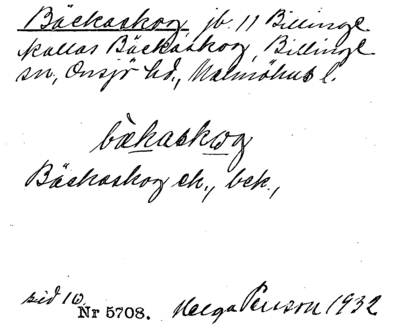 Bäckaskog jb. 11 Billinge
kallas Bäckaskog, Billinge
sn, Onsjö hd., Malmöhus l.
bækaskog
Bäckaskog ek., bek.,
sid 10.
Nr 5708. Helga Persson 1932